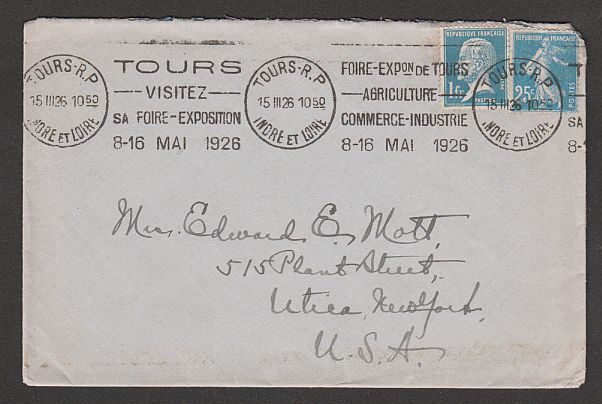 TOURS-R.P
15 III26 10 50
INDRE ET LOIRE
TOURS
VISITEZ
SA FOIRE-EXPOSITION
8-16 MAI 1926
TOURS-R.P
15 III26 10 50
INDRE ET LOIRE
FOIRE-EXPON DE TOURS
AGRICULTURE
COMMERCE-INDUSTRIE
8-16 MAI 1926
TOURS-R.P
15 III26 10 50
INDRE ET LOIRE
T
SA
8-1
REPUBLIQUE FRANÇAISE
1F
REPUBLIQUE FRANÇAISE
25c
POSTES
Mrs. Edward E. Mott,
515 Plant Street,
Utica, New York,
U.S.A.